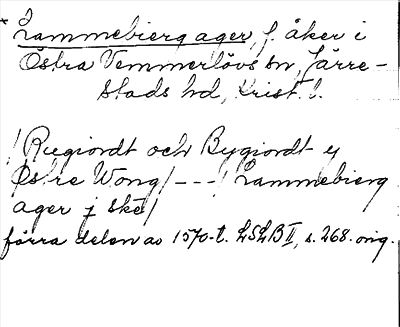 * Lammebierg ager, f. åker i
Östra Vemmerlövs sn, Järre-
stads hd, Krist. l.
/Ruegiordt och Bygiordt y
Østre Wong/ - - - / Lammebierg
ager j ske/
förra delen av 1570-t. LSLB II, s. 268. orig.